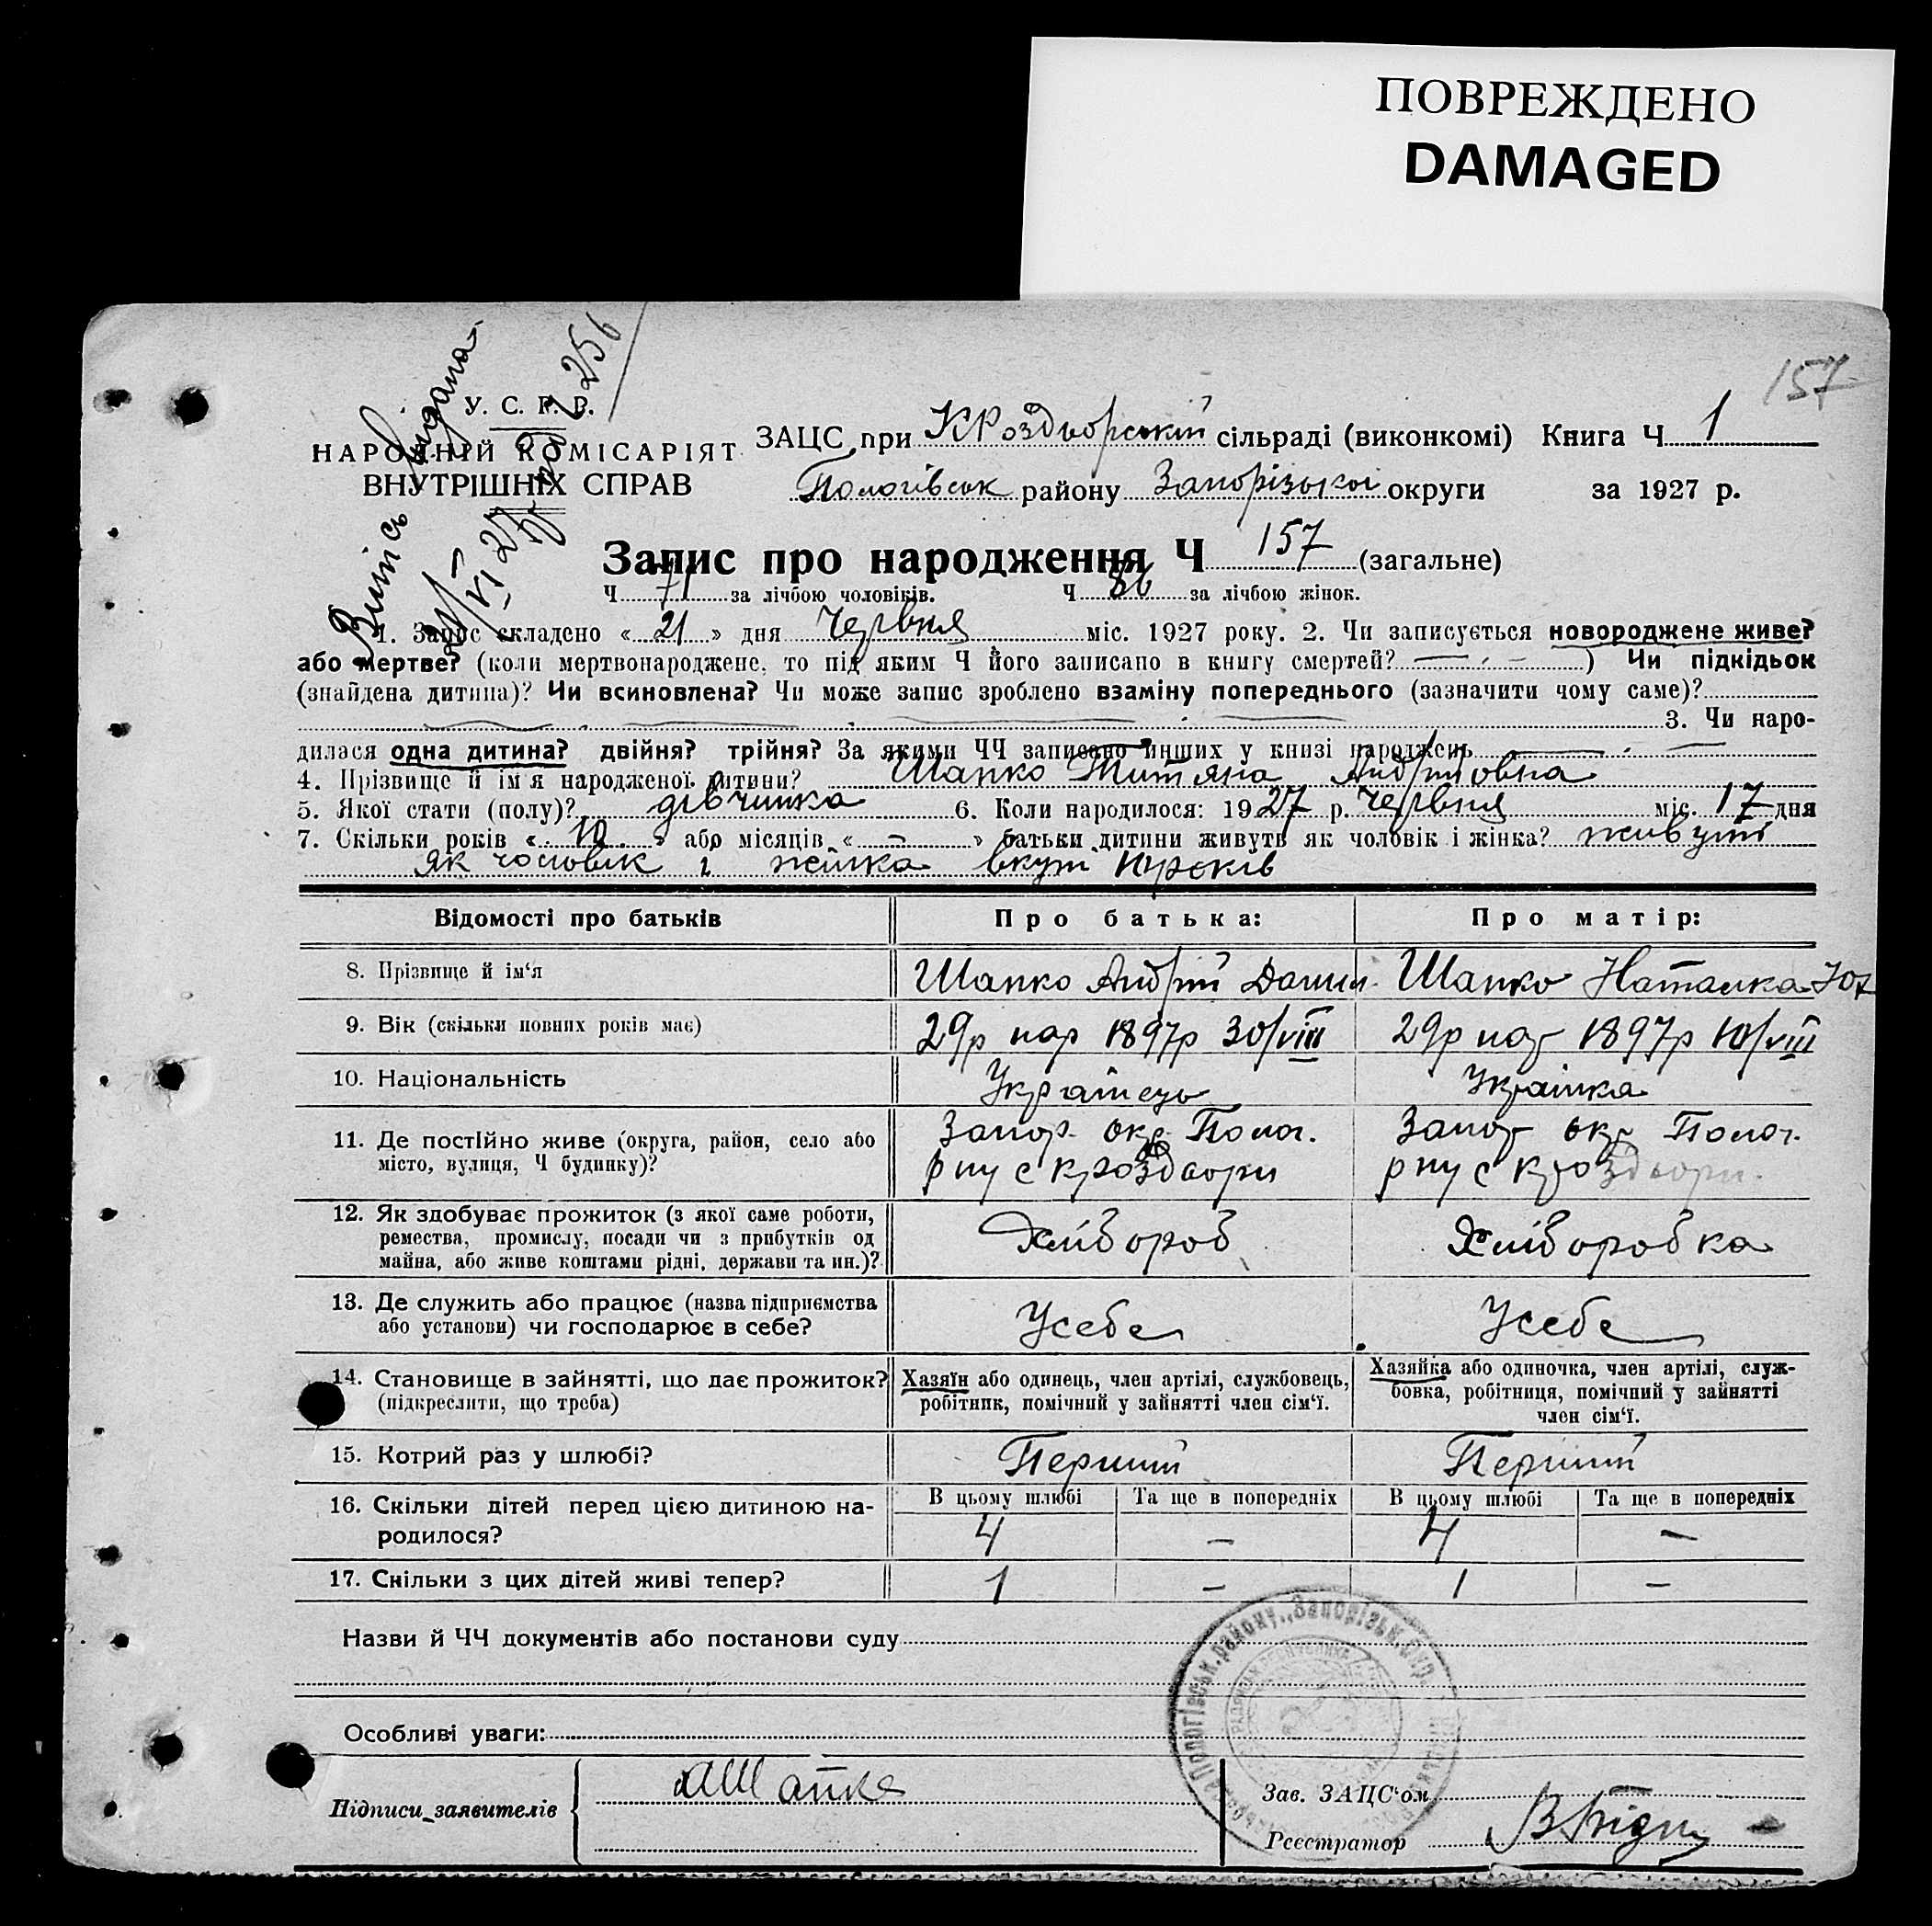 ПОВРЕЖДЕНО
DAMAGED
157
Випись видана
У. С. Р. Р.
НАРОДНІЙ КОМІСАРІЯТ
ВНУТРІШНІХ СПРАВ
ЗАЦС при КРоздворській сільраді (виконкомі) Книга Ч 1
Пологівськ району Запорізької округи за 1927 р.
Запис про народження Ч 157 (загальне)
Ч 71 за лічбою чоловіків. Ч 86 за лічбою жінок.
1. Запис складено « 21 » дня Червня міс. 1927 року. 2. Чи записується новороджене живе?
або мертве? (коли мертвонароджене, то під яким Ч його записано в книгу смертей? — . – ) Чи підкідьок
(знайдена дитина)? Чи всиновлена? Чи може запис зроблено взаміну попереднього (зазначити чому саме)?
3. Чи наро-
дилася одна дитина? двійня? трійня? За якими ЧЧ записано инших у книзі народжень — . —
4. Прізвище й ім'я народженої дитини? Шапко Титяна Андріївна
5. Якої стати (полу)? дівчинка 6. Коли народилося: 1927 р. Червня міс. 17 дня
7. Скільки років « 10 » або місяців « – » батьки дитини живуть як чоловік і жінка? живуть
як чоловік і жінка вкупі
Відомості про батьків Про батька: Про матір:
8. Прізвище й ім‘я Шапко Андрій Данил. Шапко Наталка
9. Вік (скільки повних років має) 29р нар 1897р 30/VIII 29р нар 1897р 10/VIII
10. Національність Українець Українка
11. Де постійно живе (округа, район, село або Запор. окр. Полог. Запор окр Полог.
місто, вулиця, Ч будинку)? рну с кроздори рну с кроздори.
12. Як здобуває прожиток (з якої саме роботи,
ремества, промислу, посади чи з прибутків од
майна, або живе коштами рідні, держави та ин.)? Хлібороб Хліборобка
13. Де служить або працює (назва підприємства
або установи) чи господарює в себе? Усебе Усебе
14. Становище в зайнятті, що дає прожиток?
(підкреслити, що треба)
Хазяїн або одинець, член артілі, службовець,
робітник, помічний у зайнятті член сім‘ї.
Хазяйка або одиночка, член артілі, служ-
бовка, робітниця, помічний у зайнятті
член сім‘ї.
15. Котрий раз у шлюбі? Перший Перший
16. Скільки дітей перед цією дитиною на-
родилося?
В цьому шлюбі Та ще в попередніх В цьому шлюбі Та ще в попередніх
4 – 4 –
17. Скільки з цих дітей живі тепер? 1 – 1 –
Назви й ЧЧ документів або постанови суду
Особливі уваги:
Підписи заявителів АШапка
Зав. ЗАЦС‘ом
Реєстратор